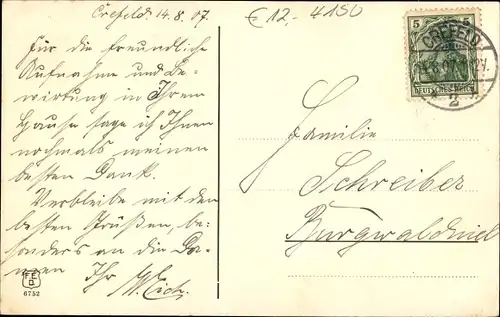 Crefeld. 14.8.07.
€12,- 4150
Für die freundliche
Aufnahme und Be-
wirtung in Ihrem
Hause sage ich Ihnen
nochmals meinen
besten Dank.
Verbleibe mit den
besten Grüßen, be-
sonders an die Da-
men Ihr
5 5
CREFELD
2
DEUTSCHES REICH
Familie
Schreiber
Burgwaldniel
6752